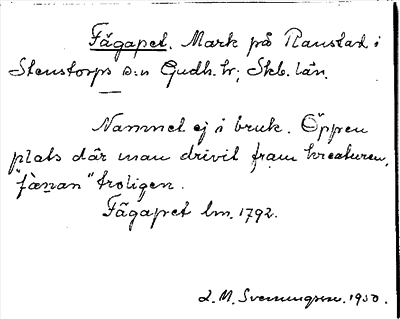 Fägapet. Mark på Ranstad i
Stenstorps s:n Gudh. hr; Skb. län.
Namnet ej i bruk. Öppen
plats där man drivit fram kreaturen,
"fänan" troligen.
Fägapet lm. 1792.
L. M. Svenungsson. 1930.